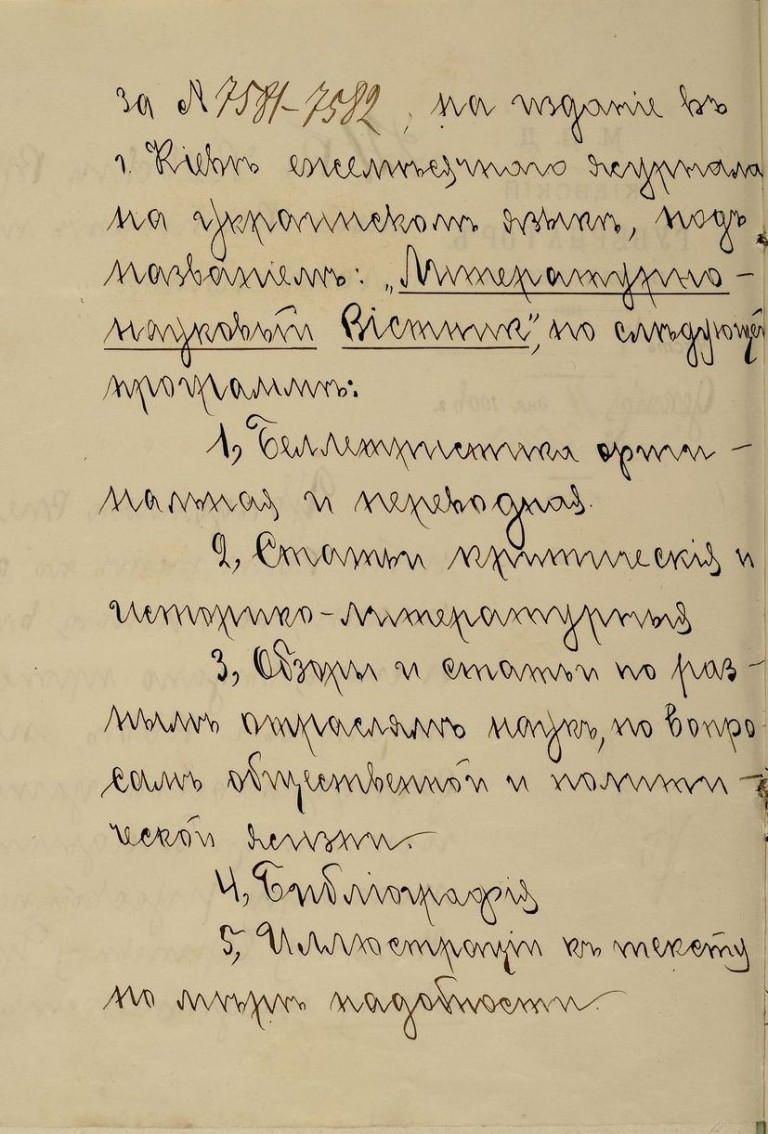 за № 7581-7582, на изданіе въ
г. Кіевѣ ежемѣсячнаго журнала
на украинскомъ языкѣ, подъ
названіемъ: „Литературно-
науковый Вістник", по слѣдующей
программѣ:
1, Беллетристика ориги-
нальная и переводная.
2, Статьи критическія и
историко-литературныя
3, Обзоры и статьи по раз-
нымъ отраслямъ наукъ, по вопро
самъ общественной и полити-
ческой жизни.
4, Библіографія
5, Иллюстраціи къ тексту
по мѣрѣ надобности.